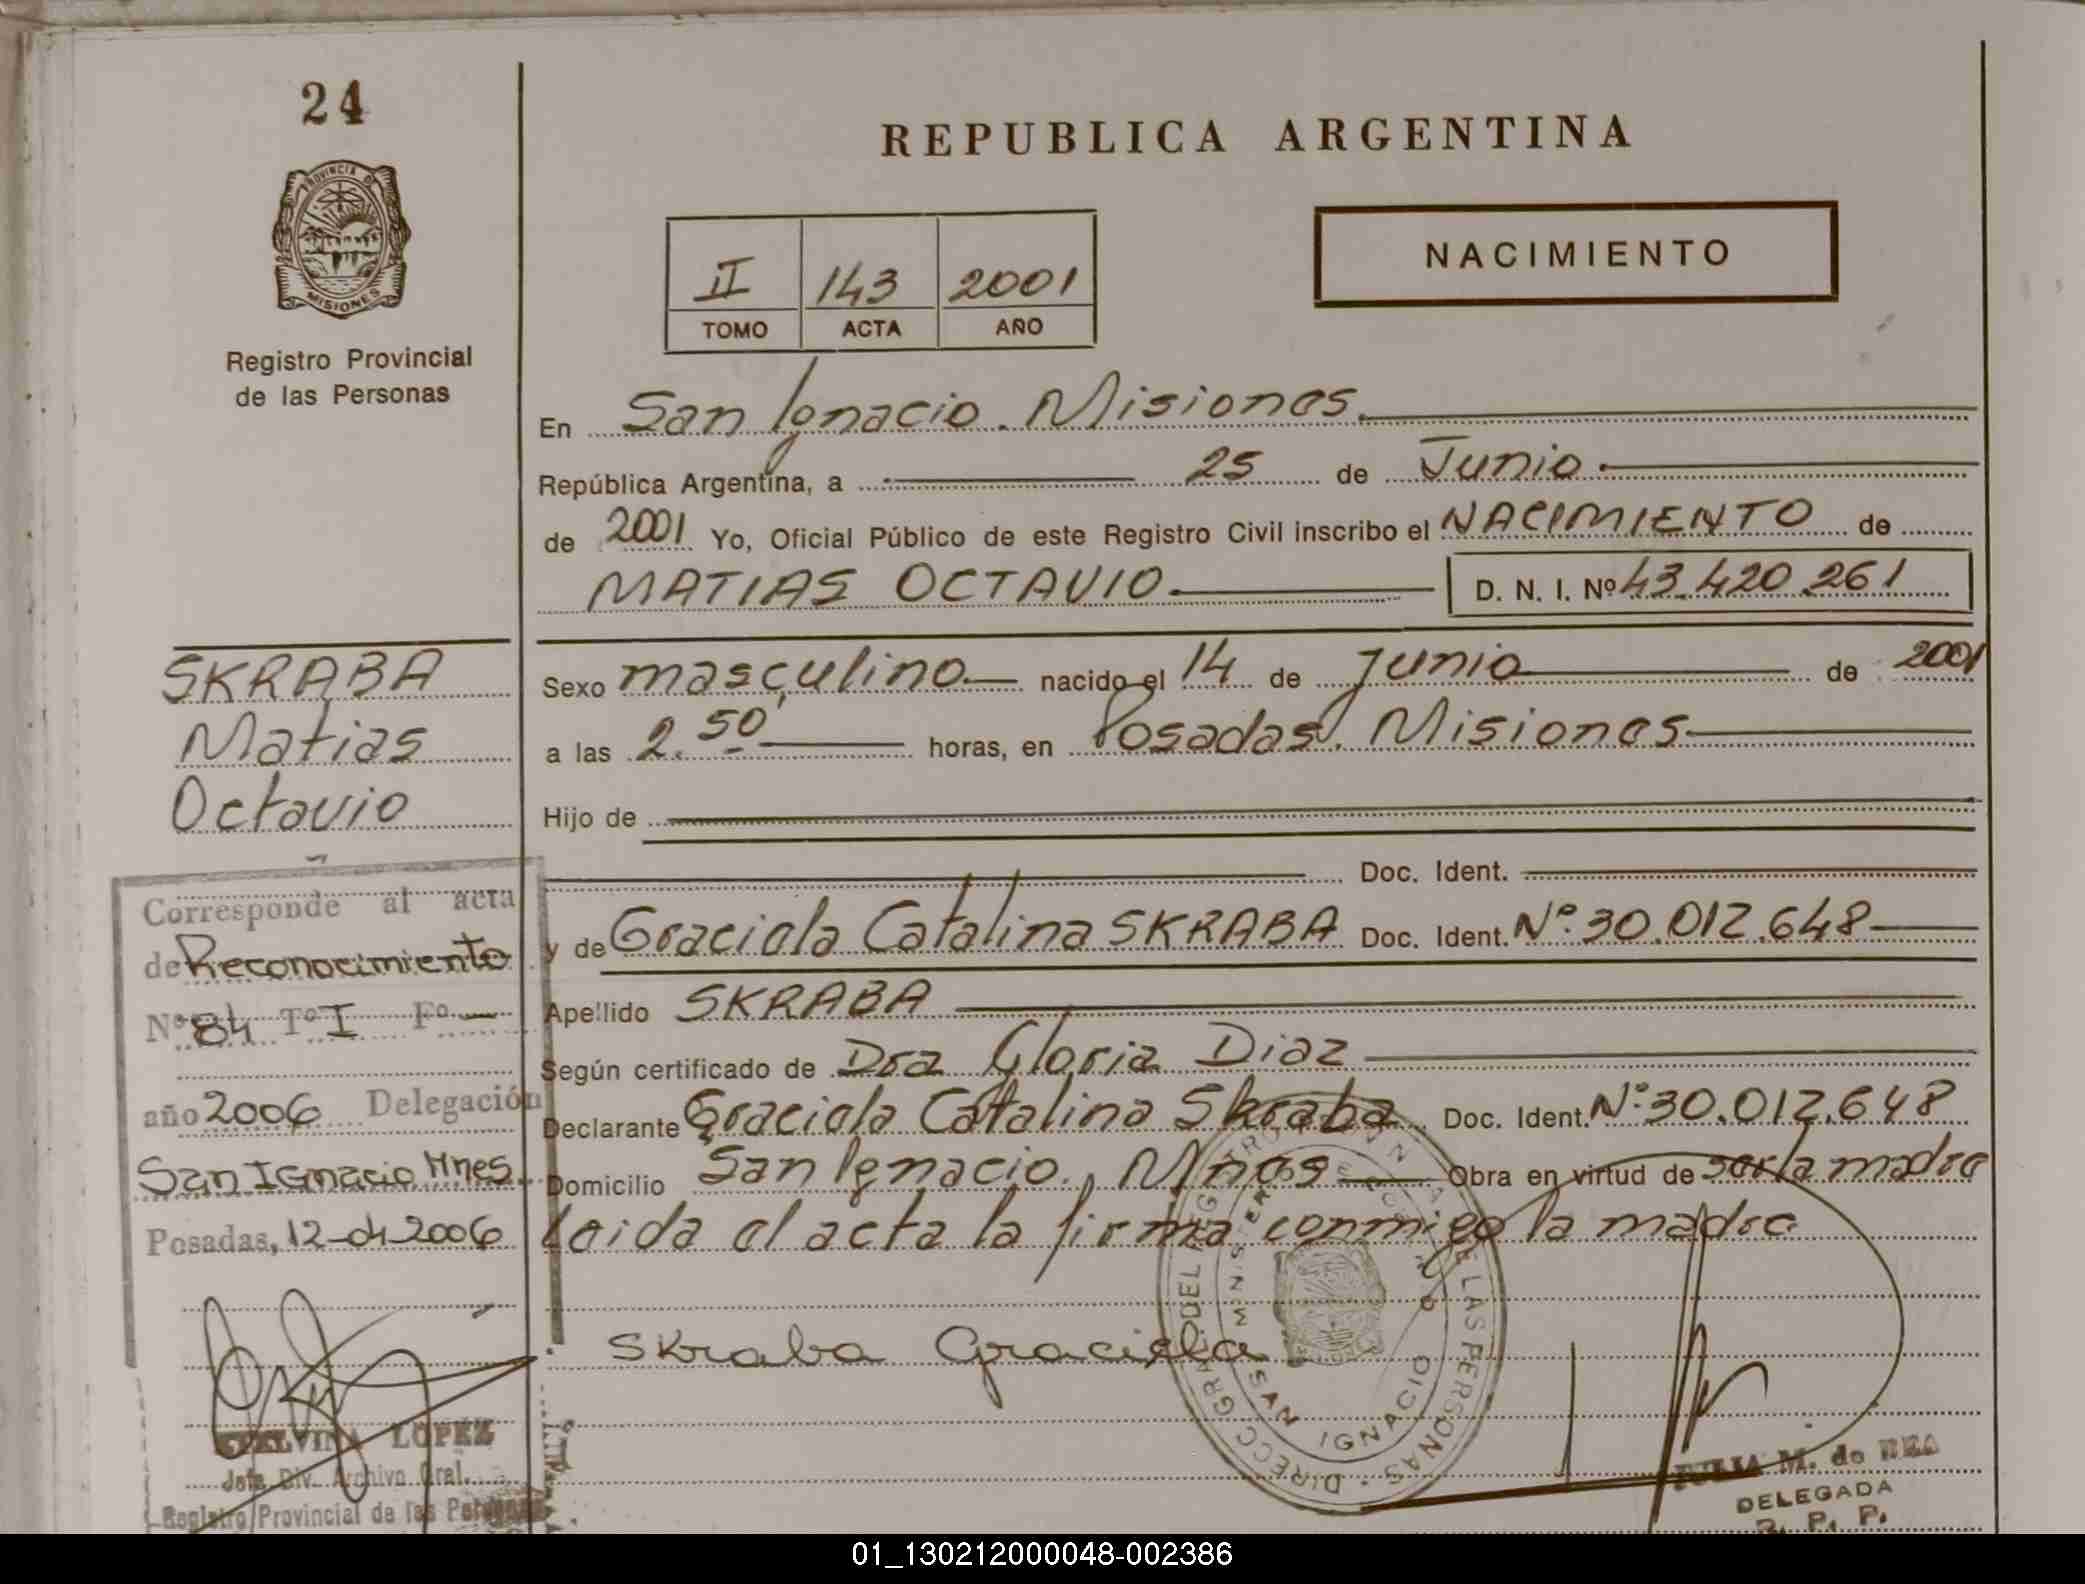 24
PROVINCIA DE
MISIONES
Registro Provincial
de las Personas
REPUBLICA ARGENTINA
NACIMIENTO
II 143 2001
TOMO ACTA AÑO
En San Ignacio. Misiones.
República Argentina, a 25 de Junio
de 2001 Yo, Oficial Público de este Registro Civil inscribo el NACIMIENTO de
MATIAS OCTAVIO D. N. I. Nº 43.420.261
Sexo masculino nacido el 14 de Junio de 2001
a las 2.50' horas, en Posadas. Misiones
Hijo de
Doc. Ident.
y de Graciela Catalina SKRABA Doc. Ident. Nº 30.012.648
Apellido SKRABA
Según certificado de Dra Gloria Diaz
Declarante Graciela Catalina Skraba Doc. Ident. Nº 30.012.648
Domicilio San Ignacio, Mnes Obra en virtud de ser la madre
Leida el acta la firma conmigo la madre
Skraba Graciela
SKRABA
Matias
Octavio
Corresponde al acta
de Reconocimiento
Nº 84 Tº I Fº —
año 2006 Delegación
San Ignacio Mnes
Posadas, 12-04-2006
LOPEZ
Jefa Div. Archivo Gral.
Registro Provincial de las
DIRECC GRAL DEL REGISTRO DE LAS PERSONAS
SAN IGNACIO
JULIA M. de REA
DELEGADA
R. P. P.
01_130212000048-002386